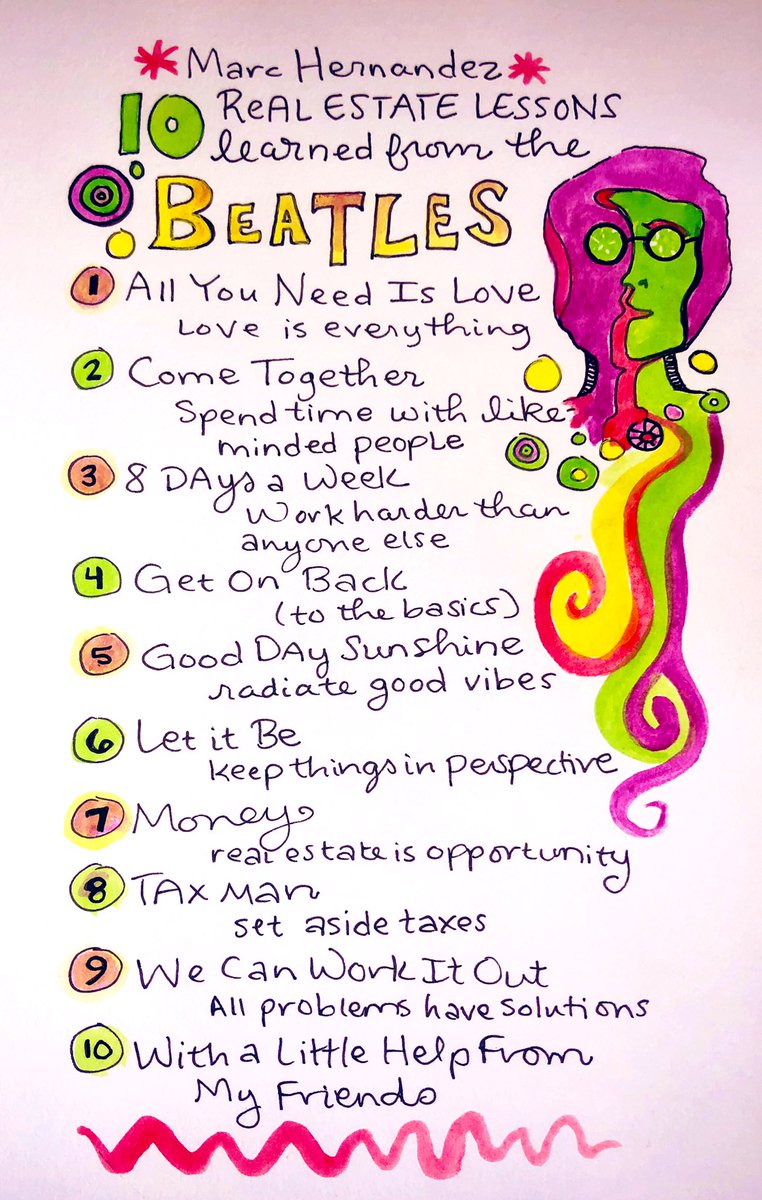 Marc Hernandez
10 REAL ESTATE LESSONS
learned from the
BEATLES
1 All You Need Is Love
Love is everything
2 Come Together
Spend time with like-
minded people
3 8 DAys a Week
Work harder than
anyone else
4 Get On Back
(to the basics)
5 Good DAy Sunshine
radiate good vibes
6 Let it Be
keep things in perspective
7 Money
real estate is opportunity
8 TAX MAN
set aside taxes
9 We Can Work It Out
All problems have solutions
10 With a Little Help From
My Friends